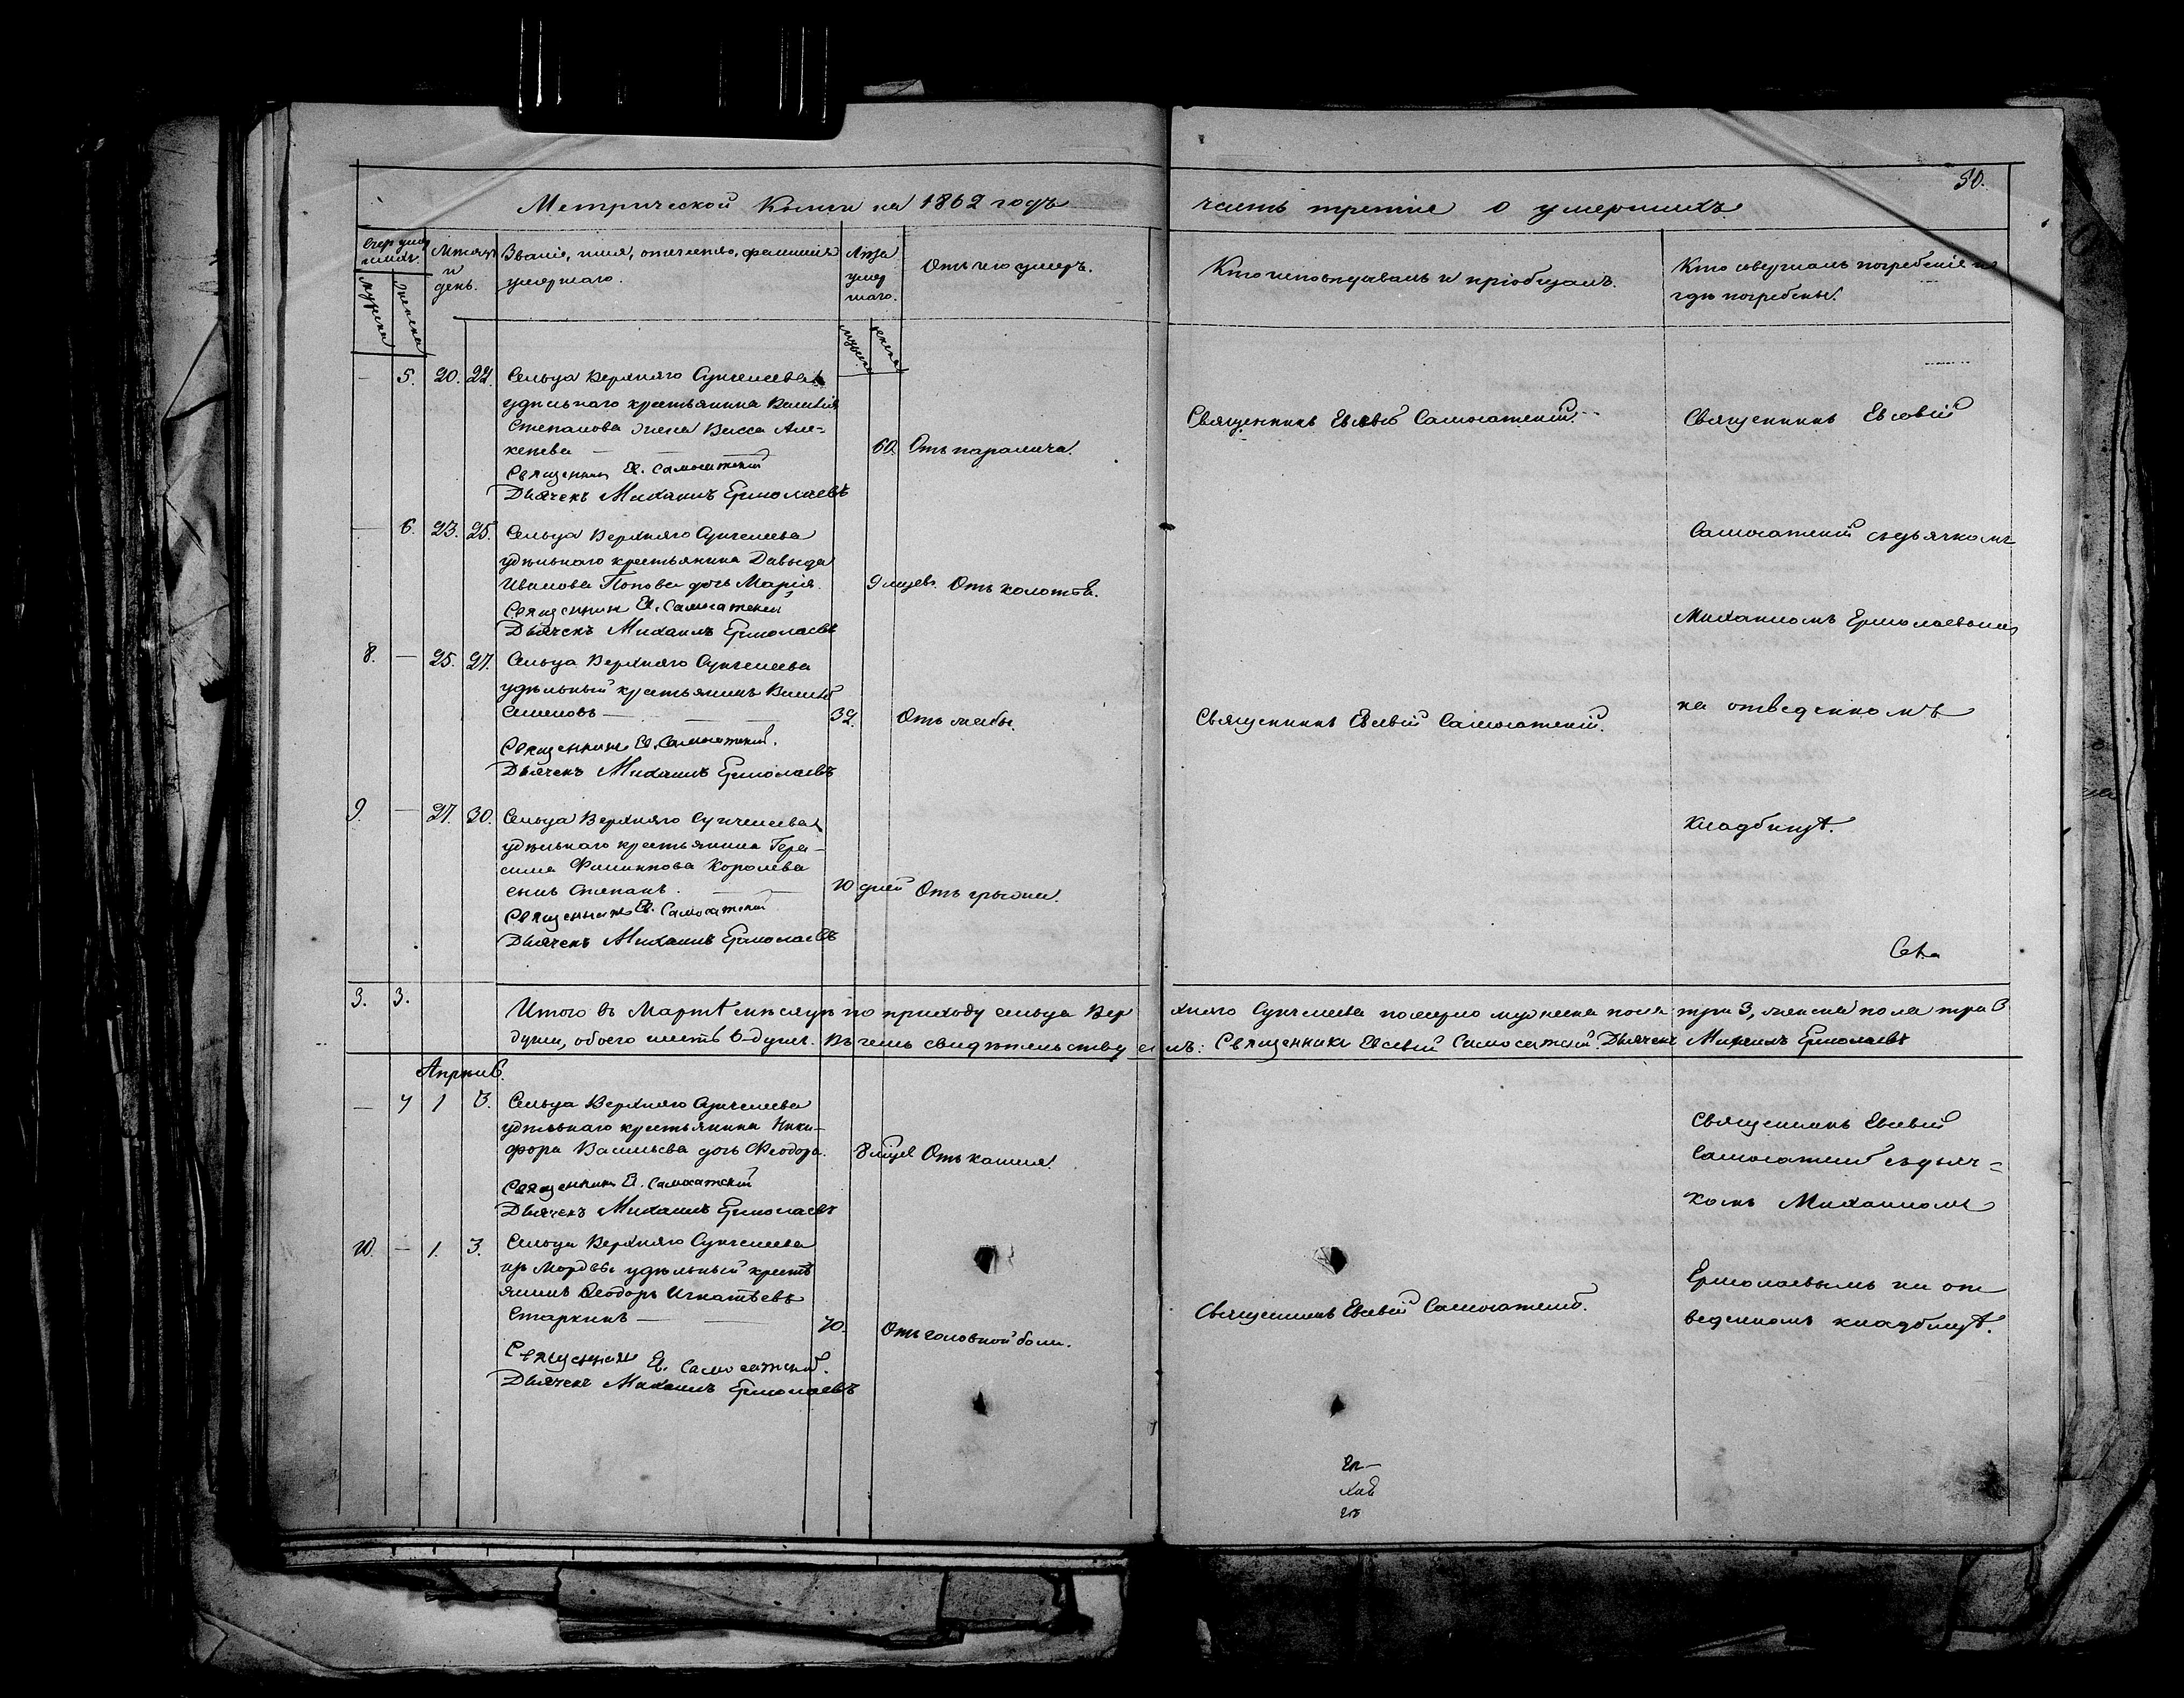 50.
Метрической Книги на 1862 годъ часть третія о умершихъ
Счер умер
шихъ.
мужска
женска
Мѣсяцъ
и
день.
Званіе, имя, отчество, фамилія
умершаго.
Лѣта
умер
шаго.
мужска
женска
Отъ чего умеръ.
Кто исповѣдывалъ и пріобщалъ.
Кто совершалъ погребеніе и
гдѣ погребены.
— 5. 20. 22. Сельца Верхняго Сунчелеева
удѣльнаго крестьянина Василія
Степанова жена Васса Але-
ксѣева — 60. Отъ паралича.
Священникъ Ев. Самосатскій
Дьячекъ Михаилъ Ермолаевъ
Священникъ Евсевій Самосатскій.
Священникъ Евсевій
— 6. 23. 25. Сельца Верхняго Сунчелеева
удѣльнаго крестьянина Давыда
Иванова Попова дочь Марія. 9 мѣсев. Отъ колотья.
Священникъ Ев. Самосатскій
Дьячекъ Михаилъ Ермолаевъ
Самосатскій съ дьячкомъ
Михаиломъ Ермолаевымъ
8. — 25. 27. Сельца Верхняго Сунчелеева
удѣльный крестьянинъ Василій
Семеновъ — 32. Отъ жабы.
Священникъ Ев. Самосатскій.
Дьячекъ Михаилъ Ермолаевъ
Священникъ Евсевій Самосатскій.
на отведенномъ
9. — 27. 30. Сельца Верхняго Сунчелеева
удѣльнаго крестьянина Гера-
сима Филиппова Королева
сынъ Степанъ. 10 дней Отъ грыжи.
Священникъ Ев. Самосатскій
Дьячекъ Михаилъ Ермолаевъ
кладбищѣ.
3. 3. Итого въ Мартѣ мѣсяцѣ по приходу сельца Верхняго Сунчелеева померло мужеска пола три 3, женска пола три 3
души, обоего шесть 6-душъ. Въ чемъ свидѣтельствуемъ: Священникъ Евсевій Самосатскій. Дьячекъ Михаилъ Ермолаевъ
Апрѣль.
— 7 1 3. Сельца Верхняго Сунчелеева
удѣльнаго крестьянина Ники-
фора Васильева дочь Феодора. 8 мѣсе Отъ кашля.
Священникъ Ев. Самосатскій
Дьячекъ Михаилъ Ермолаевъ
Священникъ Евсевій
Самосатскій съ дьяч-
комъ Михаиломъ
10. — 1. 3. Сельца Верхняго Сунчелеева
изъ Мордвы удѣльный кресть
янинъ Феодоръ Игнатьевъ
Старкинъ — 70. Отъ головной боли.
Священникъ Ев. Самосатскій.
Дьячекъ Михаилъ Ермолаевъ
Священникъ Евсевій Самосатскій.
Ермолаевымъ на от
веденномъ кладбищѣ.